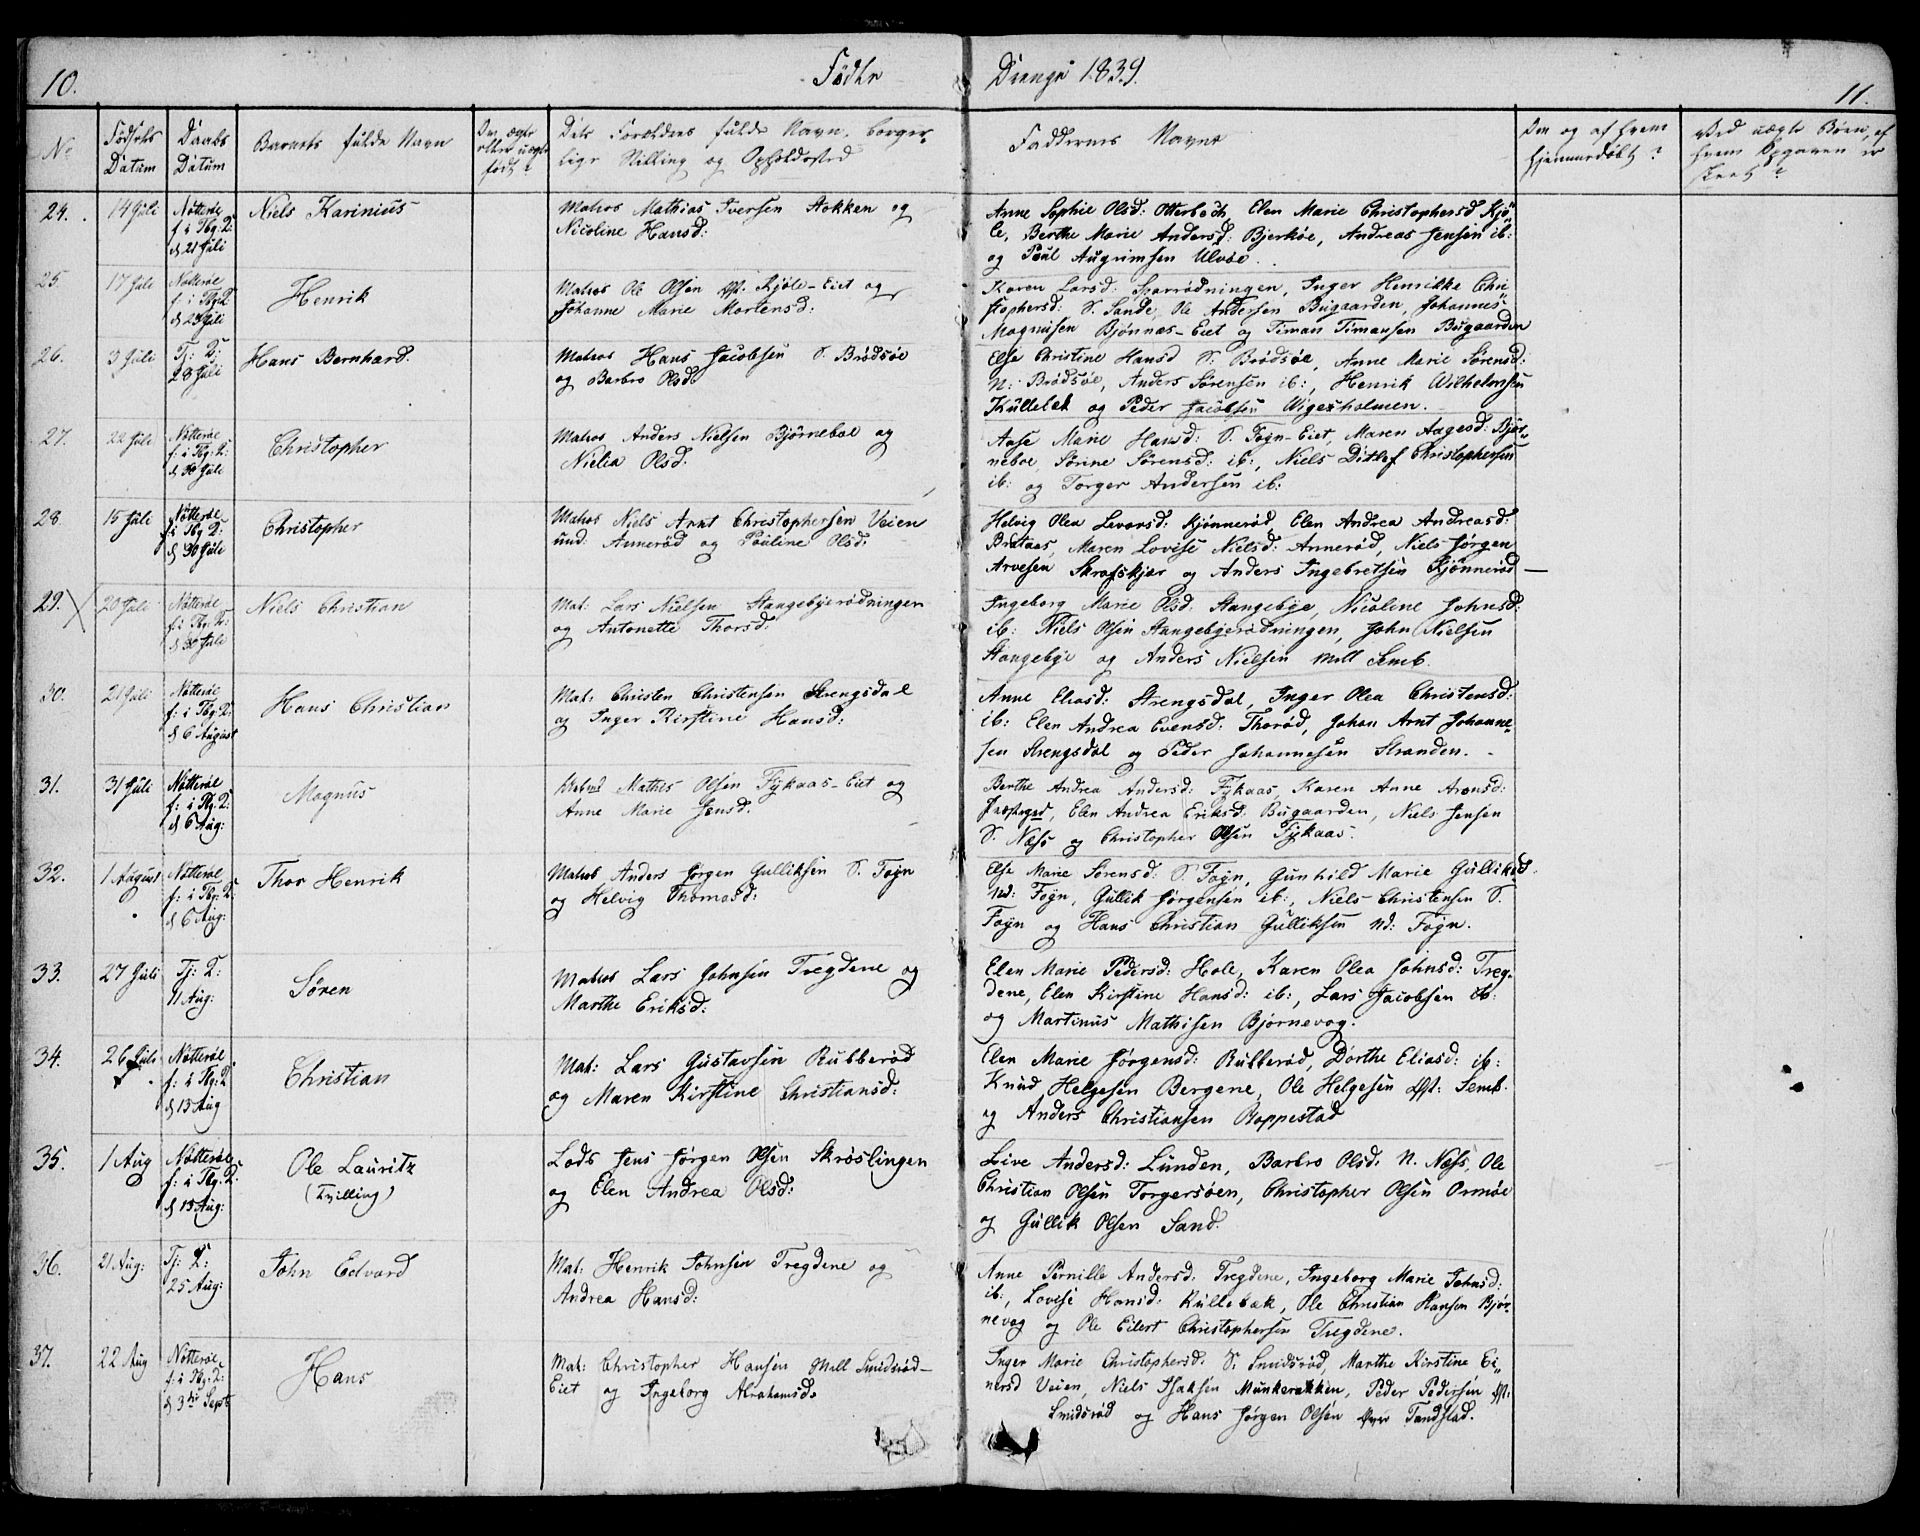 10. Fødte Drenge 1839. 11.
No
Fødsels
Datum
Daabs
Datum
Barnets fulde Navn
Om ægte
eller uægte
født?
Dets Forældres fulde Navn, borger-
lige Stilling og Opholdssted
Faddernes Navne
Om og af hvem
hjemmedøbt?
Ved uægte Børn, af
hvem Opgaven er
skeet?
24. 14 Juli
Nøtterøe
f: i Tbg: D:
d 21 Juli
Niels Karinius
Matros Mathias Iversen Stokken og
Nicoline Hansd:
Anne Sophie Olsd: Otterbech, Elen Marie Christophersd Kjø-
le, Berthe Marie Andersd: Bjerkøe, Andreas Jensen ib:
og Poul Augrimsen Ulvøe.
25. 17 Juli
Nøtterøe
f: i Tbg: D:
d 23 Juli
Henrik
Matros Ole Olsen Øst. Kjøle-Eiet og
Johanne Marie Mortensd:
Karen Larsd: Skarrødningen, Inger Henrikke Chri
stophersd: S. Sande, Ole Andersen Bugaarden, Johannes
Magnusen Bjønnæs-Eiet og Timan Timansen Bugaarden
26. 3 Juli
Tj: D:
28 Juli
Hans Bernhard.
Matros Hans Jacobsen S. Brødsøe
og Barbro Olsd:
Else Christine Hansd S: Brødsøe, Anne Marie Sørensd:
N: Brødsøe, Anders Sørensen ib:, Henrik Wilhelmsen
Küllebek og Peder Jacobsen Wigerholmen.
27. 22 Juli
Nøtterøe
f: i Tbg: D:
d 30 Juli
Christopher
Matros Anders Nielsen Bjørneboe og
Nielia Olsd.
Aase Marie Hansd: S. Føgn-Eiet, Maren Aagesd: Bjør-
neboe, Sørine Sørensd: ib:, Niels Ditlef Christophersen
ib: og Torger Andersen ib:
28. 15 Juli
Nøtterøe
f: i Tbg D:
d 30 Juli
Christopher
Matros Niels Arnt Christophersen Veien
und: Annerød og Pouline Olsd:
Helvig Olea Levorsd: Kjønnerød, Elen Andrea Andreasd:
Brataas, Maren Lovise Nielsd: Annerød, Niels Jørgen
Arvesen Skrafskjær og Anders Ingebretsen Kjønnerød
29. 20 Juli
Nøtterøe
f: i Tbg: D:
d 30 Juli
Niels Christian
Mat: Lars Nielsen Stangebyerødningen
og Antonette Thorsd:
Ingeborg Marie Olsd: Stangebye, Nicoline Johnsd:
ib: Niels Olsen Stangebyerødningen, John Nielsen
Stangebye og Anders Nielsen Mell Semb.
30. 21 Juli
Nøtterøe
f: i Tbg: D:
d 6 August
Hans Christian
Mat: Christen Christensen Strengsdal
og Inger Kirstine Hansd:
Anne Eliasd: Strengsdal, Inger Olea Christensd:
ib: Elen Andrea Evensd: Thorød, Johan Arnt Johanne-
sen Strengsdal og Peder Johannesen Stranden.
31. 31 Juli
Nøtterøe
f: i Tbg: D:
d 6 Aug:
Magnus
Matros Mathis Olsen Fykaas-Eiet og
Anne Marie Jensd:
Berthe Andrea Andersd: Fykaas, Karen Anne Aronsd:
Elen Andrea Eriksd: Bugaarden, Niels Jensen
S. Næss og Christopher Olsen Fykaas.
32. 1 August
Nøtterøe
f: i Tbg: D:
d 6 Aug:
Thor Henrik
Matros Anders Jørgen Gulliksen S. Føgn
og Helvig Thomasd:
Else Marie Sørensd: S. Føgn, Gunhild Marie Gulliksd.
Nd: Føgn, Gullik Jørgensen ib:, Niels Christensen S.
Føgn og Hans Christian Gulliksen Nd: Føgn.
33. 27 Juli
Tj: D:
11 Aug:
Søren
Matros Lars Johnsen Tregdene og
Marthe Eriksd:
Elen Marie Pedersd: Hole, Karen Olea Johnsd: Treg-
dene, Elen Kirstine Hansd: ib:, Lars Jacobsen ib:
og Martinus Mathisen Bjørnevog.
34. 26 Juli
Nøtterøe
f: i Tbg: D:
d 13 Aug
Christian
Mat: Lars Gustavsen Rubberød
og Maren Kirstine Christiansd:
Elen Marie Jørgensd: Rubberød, Dorthe Eliasd: ib:
Knud Helgesen Bergene, Ole Helgesen Øst: Semb.
og Anders Christiansen Roppestad
35. 1 Aug
Nøtterøe
f: i Tbg: D:
d 13 Aug:
Ole Lauritz
(Tvilling)
Lods Jens Jørgen Olsen Skrøslingen
og Elen Andrea Olsd:
Live Andersd: Lunden, Barbro Olsd: N. Næss, Ole
Christian Olsen Torgersøen, Christopher Olsen Ormøe
og Gullik Olsen Sand.
36. 21 Aug:
Tj: D:
25 Aug:
John Edvard
Mat: Henrik Johnsen Tregdene og
Andrea Hansd:
Anne Pernille Andersd: Tregdene, Ingeborg Marie Johnsd:
ib:, Lovise Hansd: Küllebæk, Ole Christian Hansen Bjør-
nevog og Ole Eilert Christophersen Tregdene.
37. 22 Aug
Nøtterøe
f: i Tbg: D:
d 3die Sept
Hans
Mat: Christopher Hansen Mell Smidsrød-
Eiet og Ingeborg Abrahamsd:
Inger Marie Christophersd: S. Smidsrød, Marthe Kirstine Ei-
nersd Veien, Niels Isaksen Munkerekken, Peder Pedersen Øst:
Smidsrød og Hans Jørgen Olsen Øvre Tandstad.